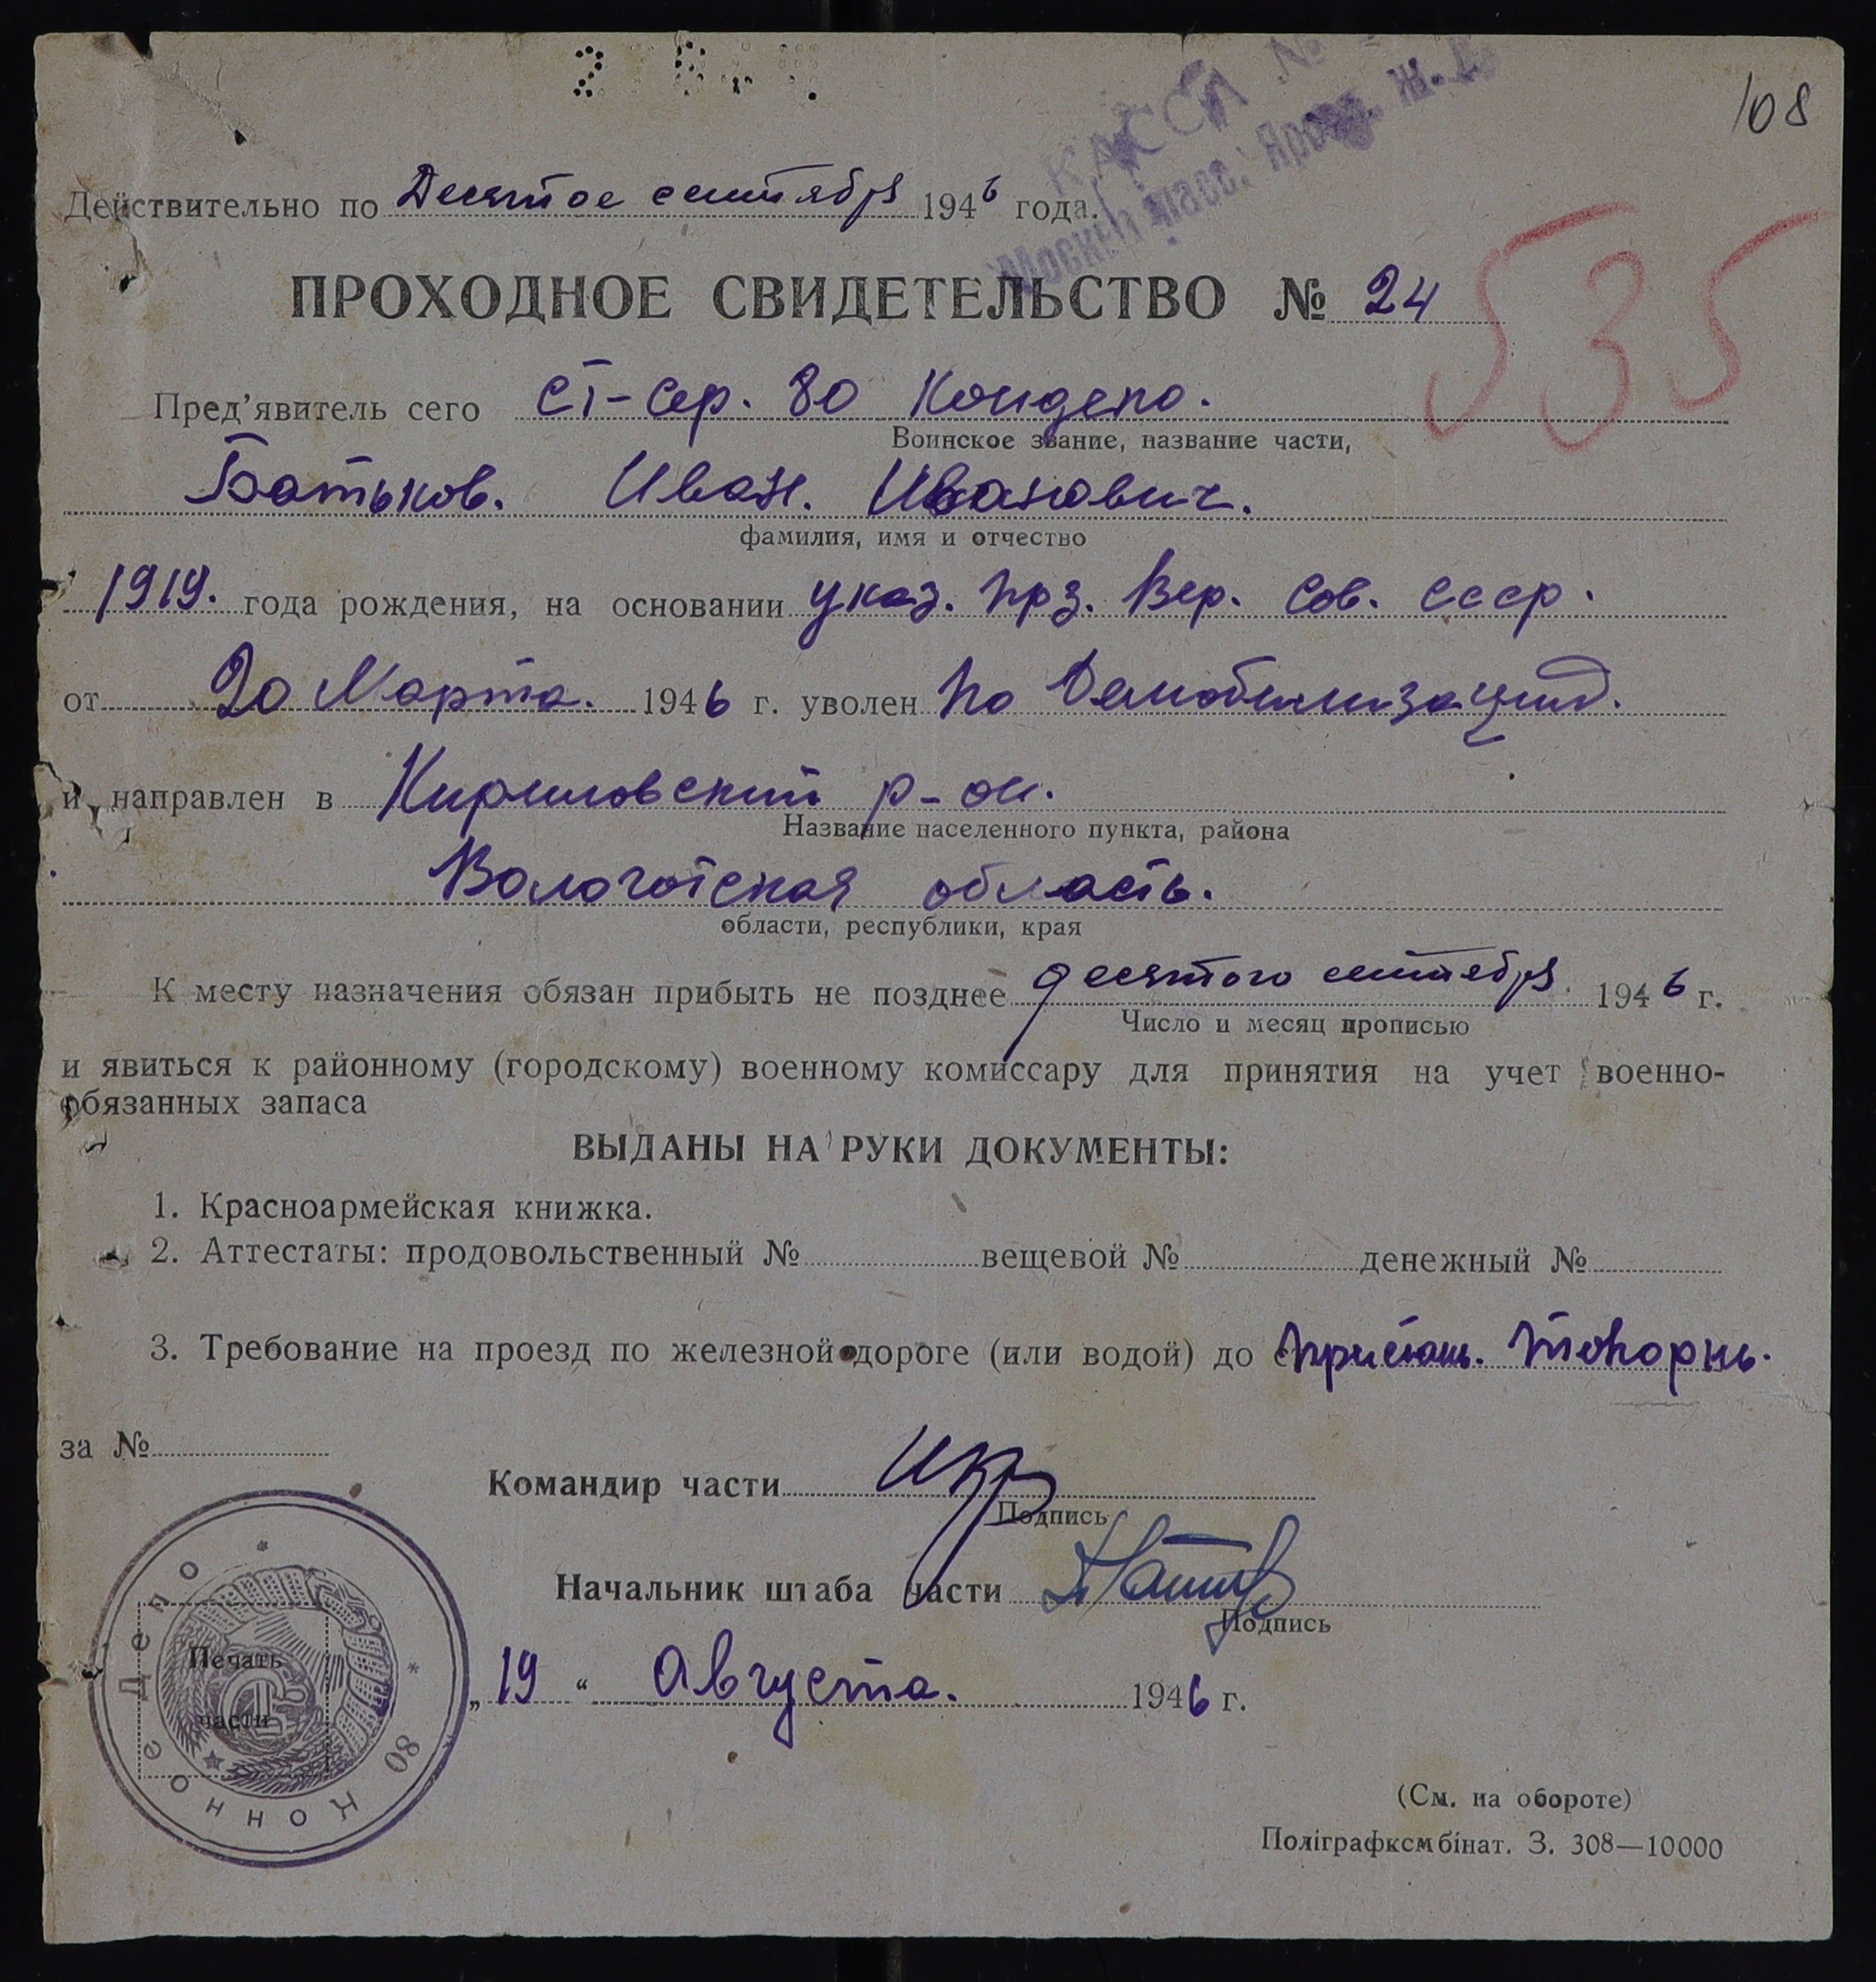 108
КАССА №
Москва пасс. Яросл. ж. д.
Действительно по Десятое сентября 1946 года.
ПРОХОДНОЕ СВИДЕТЕЛЬСТВО № 24
535
Пред'явитель сего ст-сер. 80 Кондепо.
Воинское звание, название части,
Батьков. Иван. Иванович.
фамилия, имя и отчество
1919. года рождения, на основании указ. През. Вер. Сов. СССР.
от 20 Марта. 1946 г. уволен По Демобилизации.
и направлен в Кириловский р-он.
Название населенного пункта, района
Вологотская область.
области, республики, края
К месту назначения обязан прибыть не позднее десятого сентября 1946 г.
Число и месяц прописью
и явиться к районному (городскому) военному комиссару для принятия на учет военно-
обязанных запаса
ВЫДАНЫ НА РУКИ ДОКУМЕНТЫ:
1. Красноармейская книжка.
2. Аттестаты: продовольственный № вещевой № денежный №
3. Требование на проезд по железной дороге (или водой) до пристань. Топорнь.
за №
Командир части
Подпись
Начальник штаба части
Подпись
„19“ Августа. 1946 г.
80 Конное Депо
Печать
части
(См. на обороте)
Поліграфкомбінат. З. 308—10000